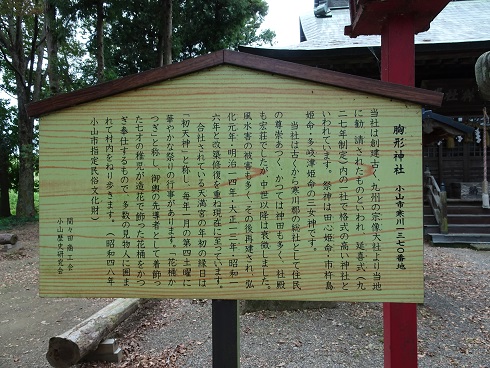 胸形神社　小山市寒川一七三〇番地
当社は創建古く、九州の宗像大社より当地
に勧請されたものといわれ、延喜式（九
二七年制定）内の一社で格式の高い神社と
いわれています。祭神は田心姫命・市杵島
姫命・多岐津姫命の三女神です。
当社は古くから寒川郡の総社として住民
の尊崇あつく、かつては神田も多く、社殿
も宏荘でしたが、中世以降は衰微しました。
風水害の被害も多く、その後再建され、弘
化元年・明治一四年・大正一二年・昭和一
六年と改築修復を重ね現在に至っています。
合社されている天満宮の年初の縁日は
「初天神」と称し、毎年一月の第四土曜に
華やかな祭りの行事があります。「花桶か
つぎ」と称し、御輿の先導者として着飾っ
た七才の稚児が造花で飾った花桶をかつ
ぎ奉仕するもので、多数の見物人に囲ま
れて村内をねり歩きます。（昭和四八年
小山市指定民俗文化財）
間々田商工会
小山歴史研究会